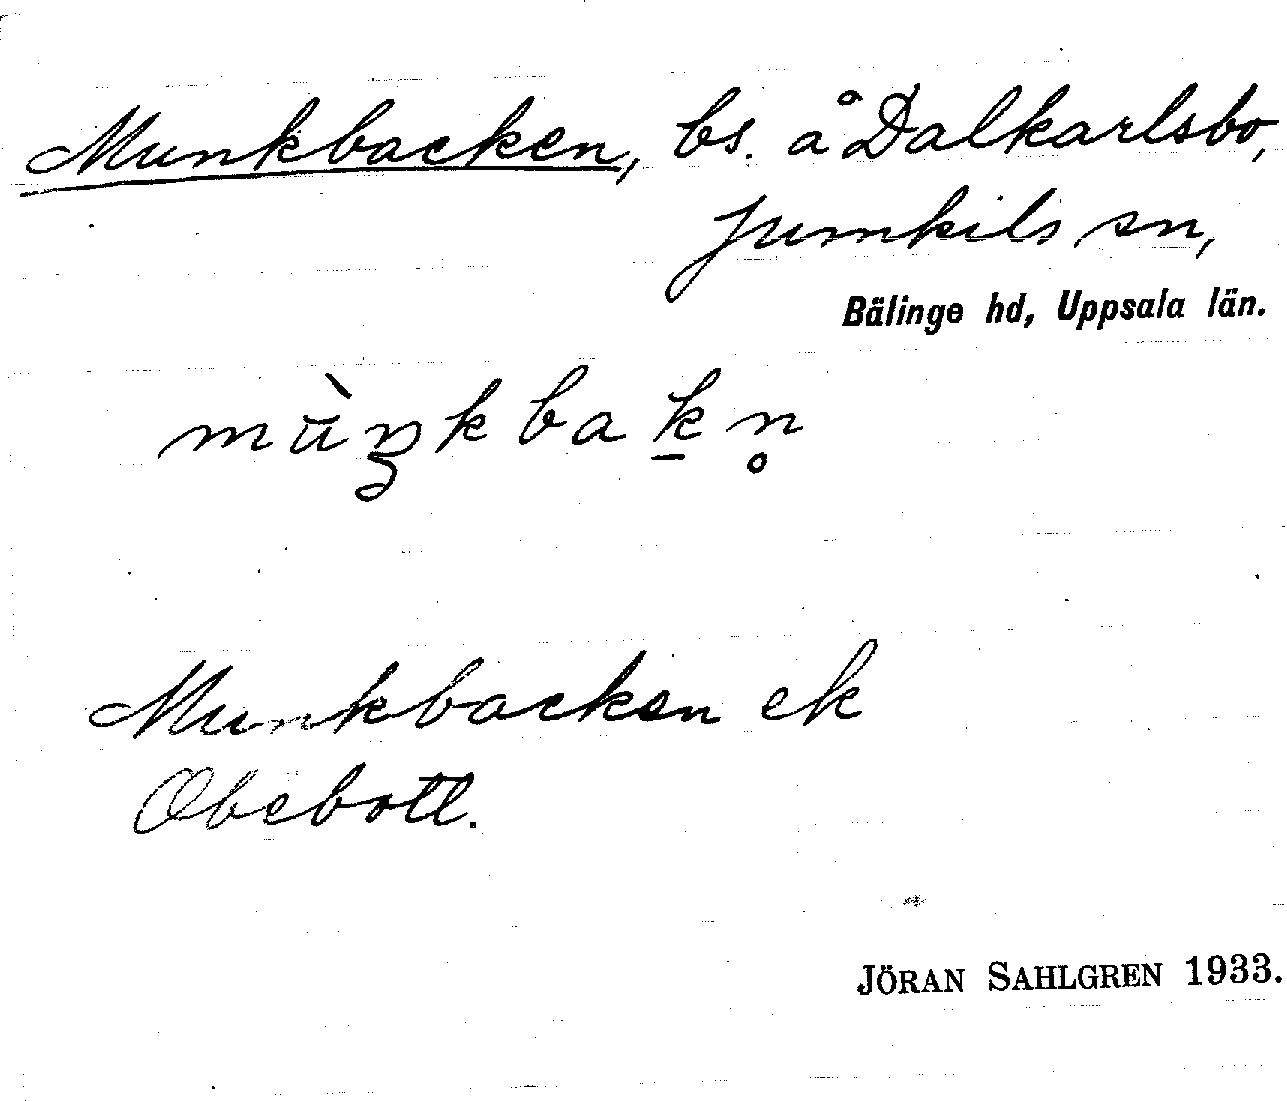 Munkbacken, bs. å Dalkarlsbo,
Jumkils sn,
Bälinge hd, Uppsala län.
mùŋkbak̠n̥
Munkbacken ek
Obebott.
JÖRAN SAHLGREN 1933.